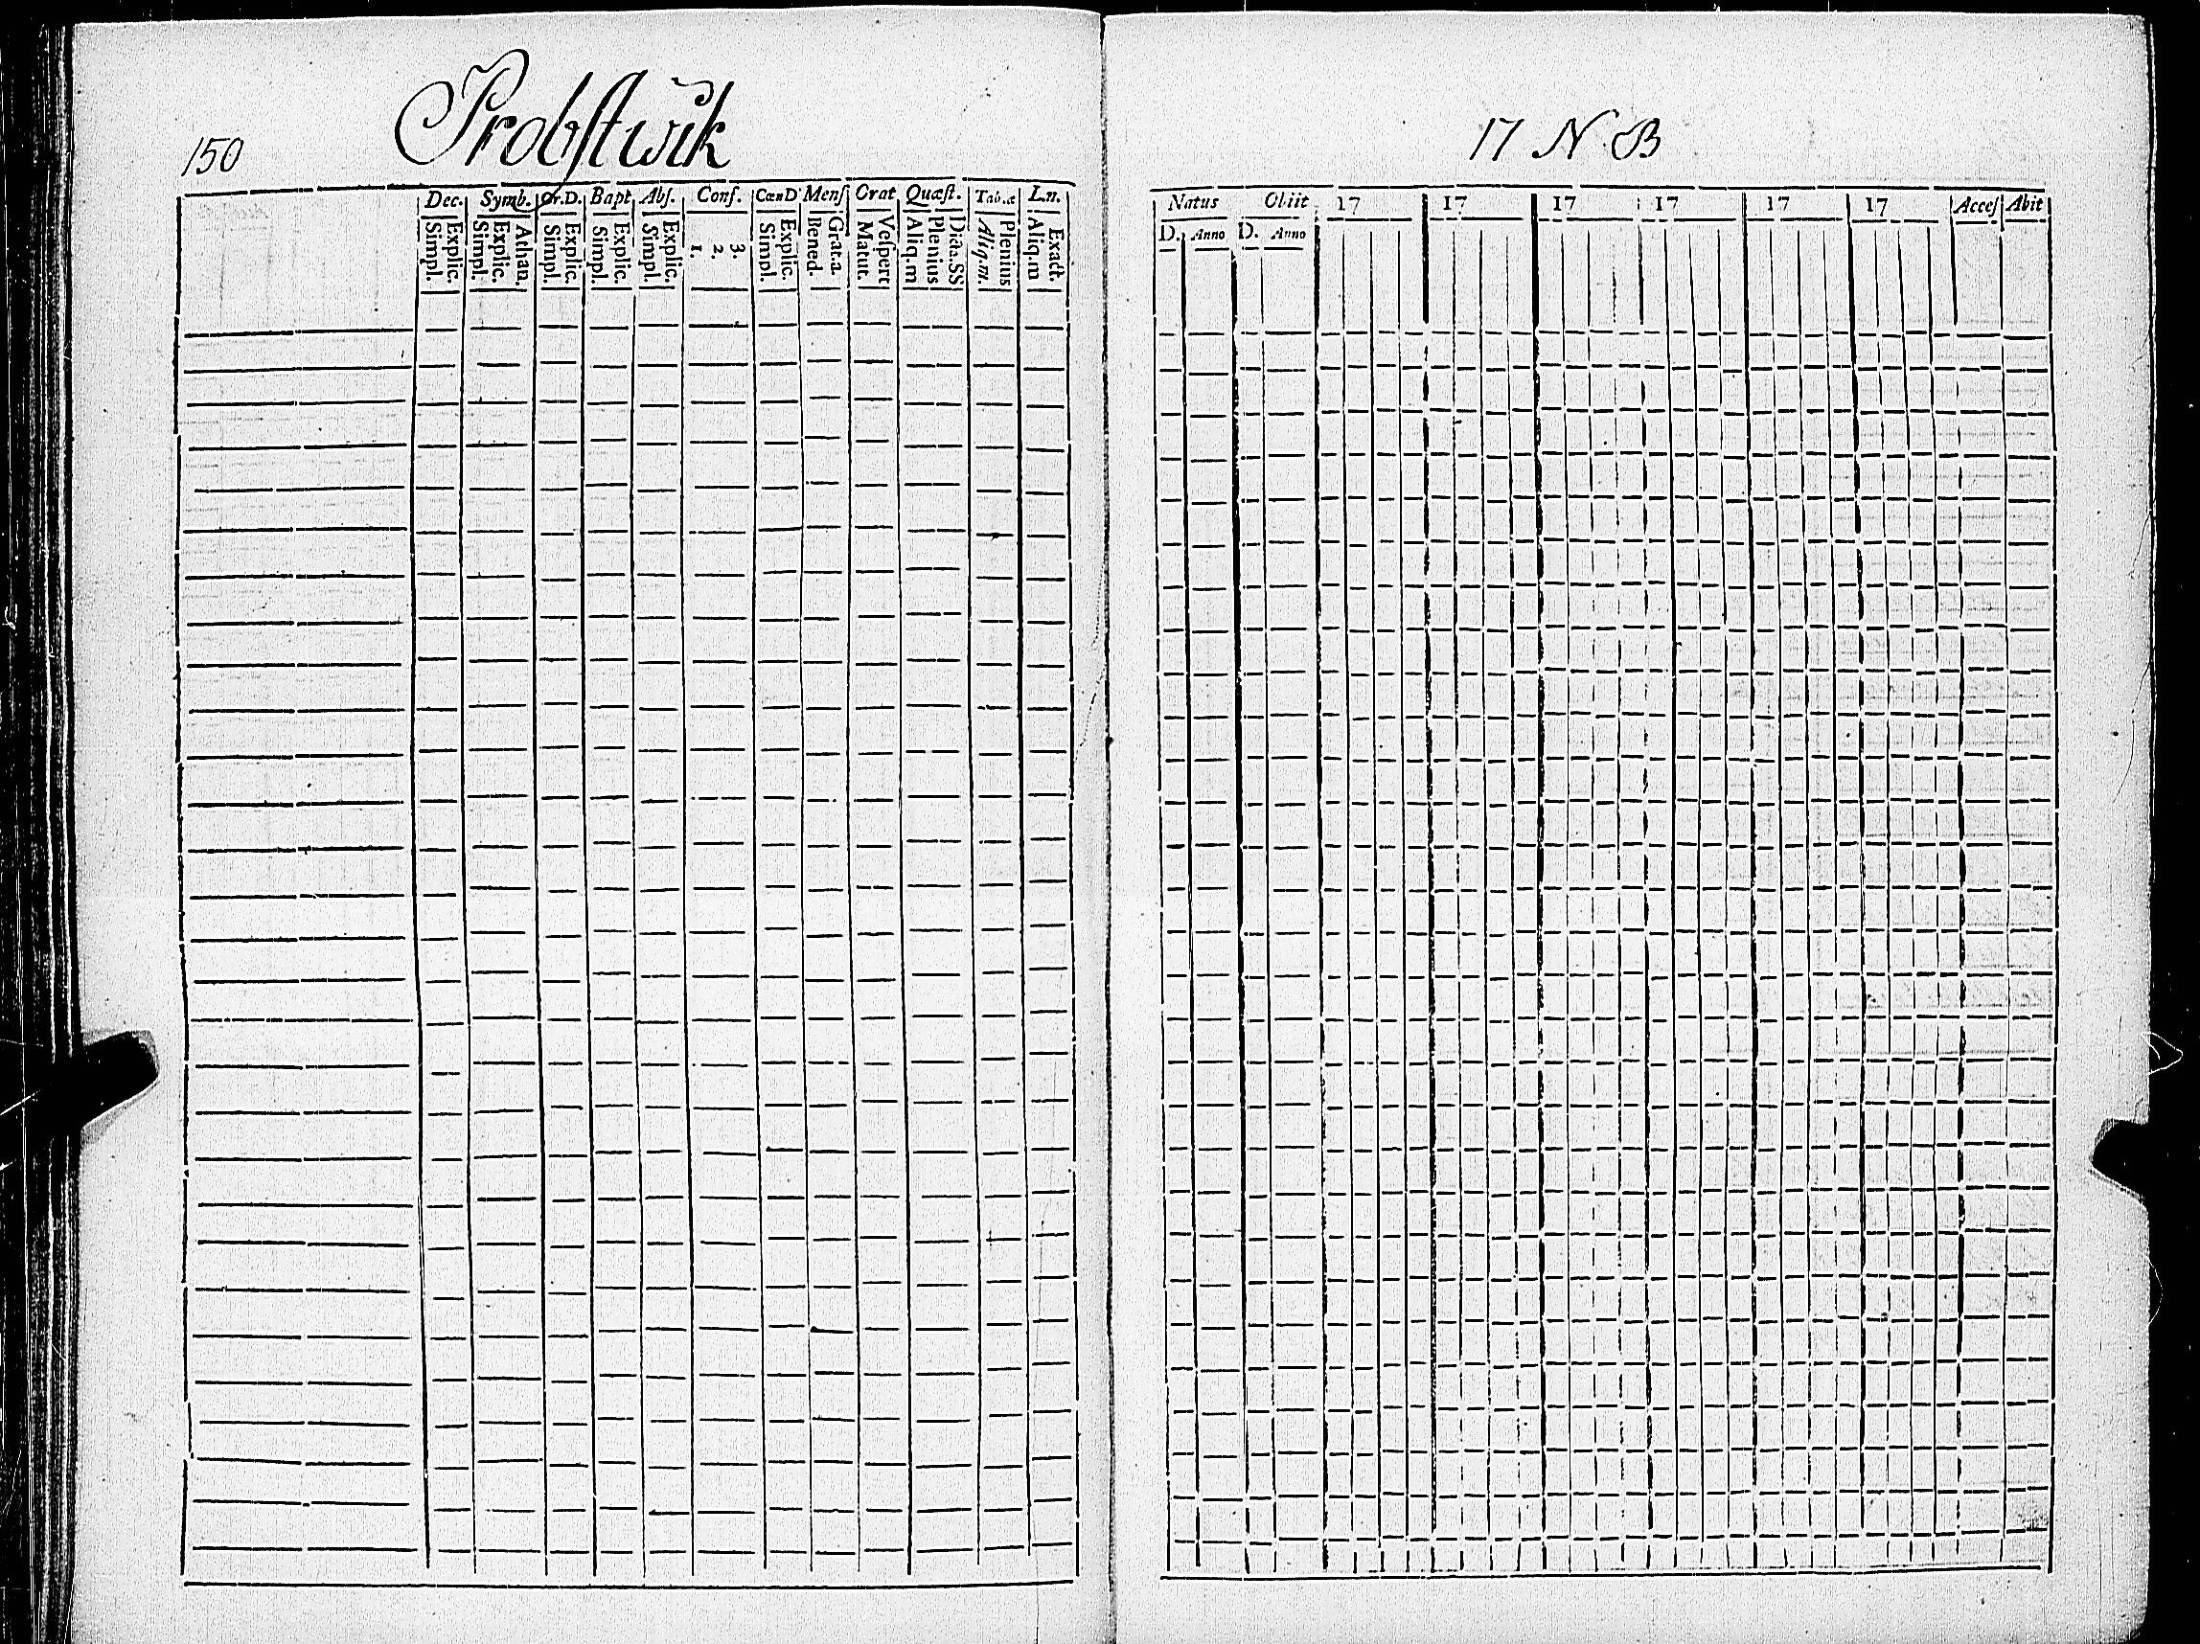 150 Probstwik
Dec. Symb. Or.D. Bapt Abs. Conf. CœnD Mens Orat Quæst. Tab.æ L.n.
Explic. Simpl. Athan. Explic. Simpl. Explic. Simpl. Explic. Simpl. Explic. Simpl. 3. 2. 1. Explic. Simpl. Grat.a. Bened. Vespert Matut. Dicta.SS Plenius Aliq.m Plenius Aliq.m. Exact. Aliq.m
17 N B
Natus Obiit 17 17 17 17 17 17 Acces Abit
D. Anno D. Anno